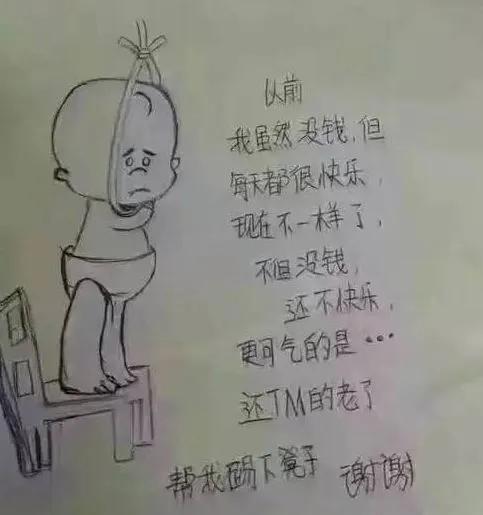 以前
我虽然没钱，但
每天都很快乐，
现在不一样了，
不但没钱，
还不快乐，
更可气的是…
还TM的老了
帮我踢下凳子 谢谢